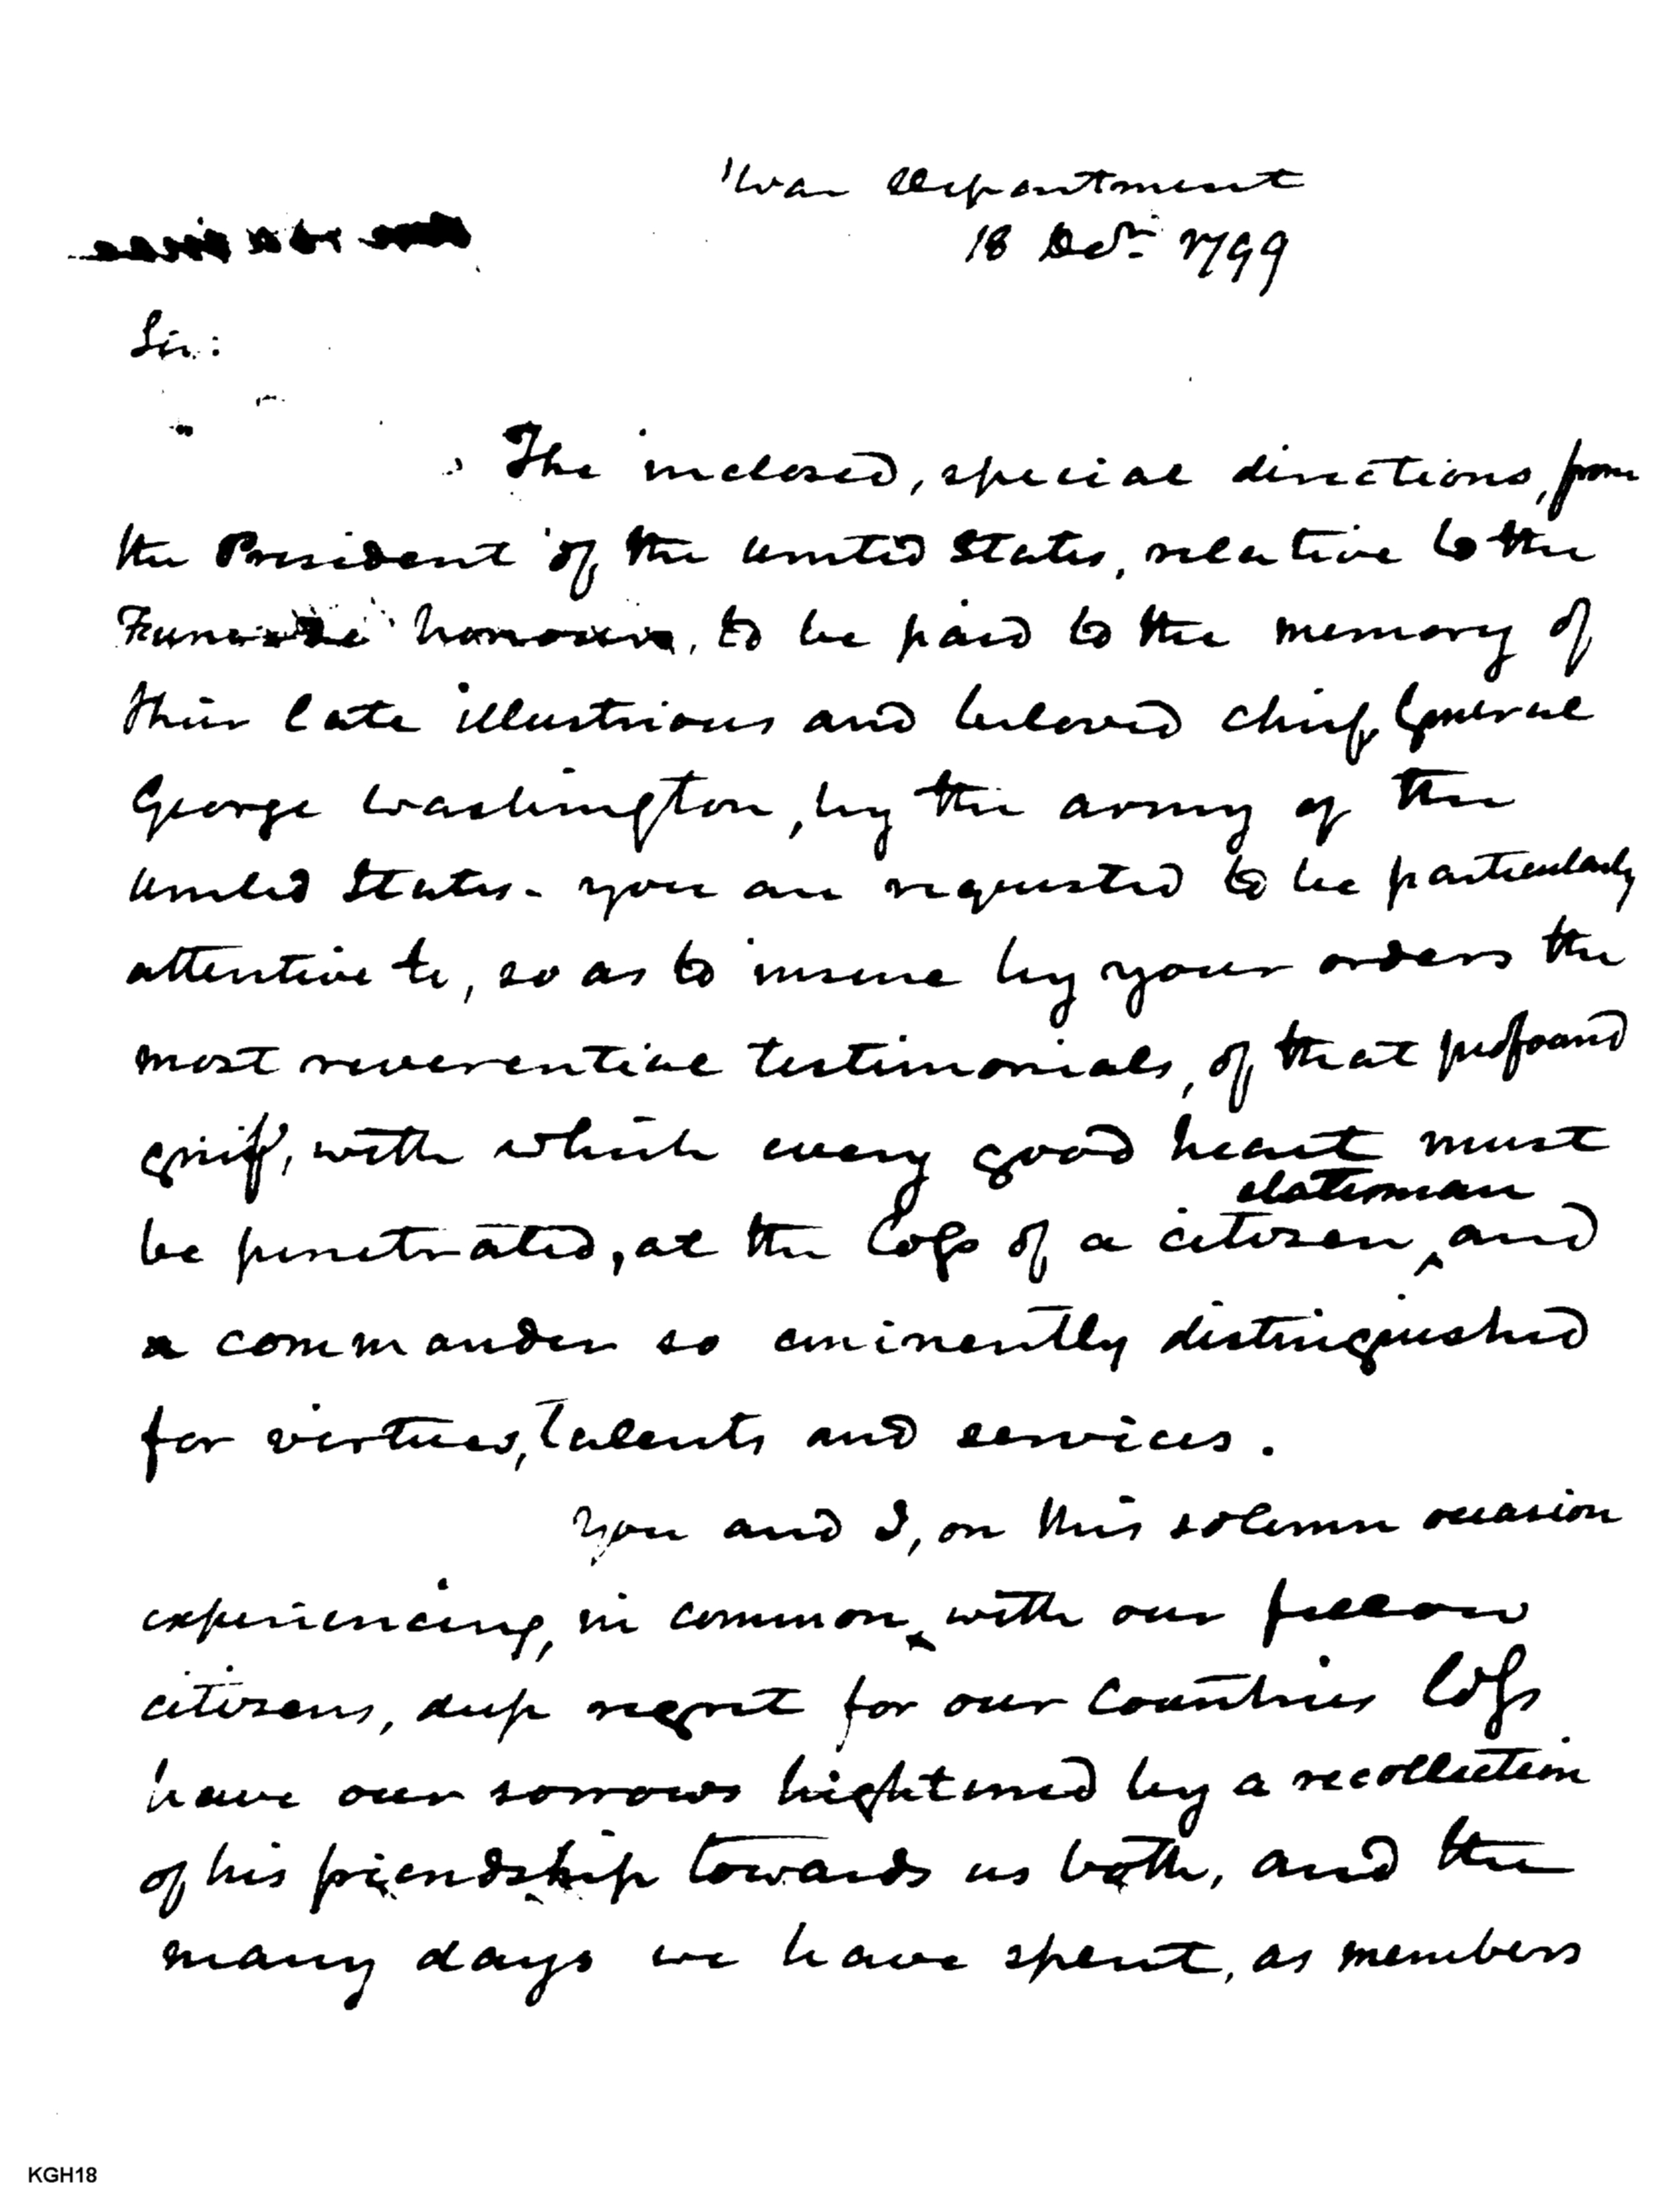 War Department
18 Decr. 1799
Sir:
The inclosed, special directions, from
the President of the United States, relative to the
Funeral honours, to be paid to the memory of
their late illustrious and beloved chief General
George Washington, by the army of the
United States - you are requested to be particularly
attentive to, so as to insure by your orders the
most reverential testimonials, of that profound
grief, with which every good heart must
statesman
be penetrated, at the loss of a citizen, and
a commander so eminently distinguished
for virtues, talents and services.
You and I, on this solemn occasion
experiencing, in common, with our fellow
citizens, deep regret for our Countries loss
have our sorrows hightened by a recollection
of his friendship towards us both, and the
many days we have spent, as members
KGH18